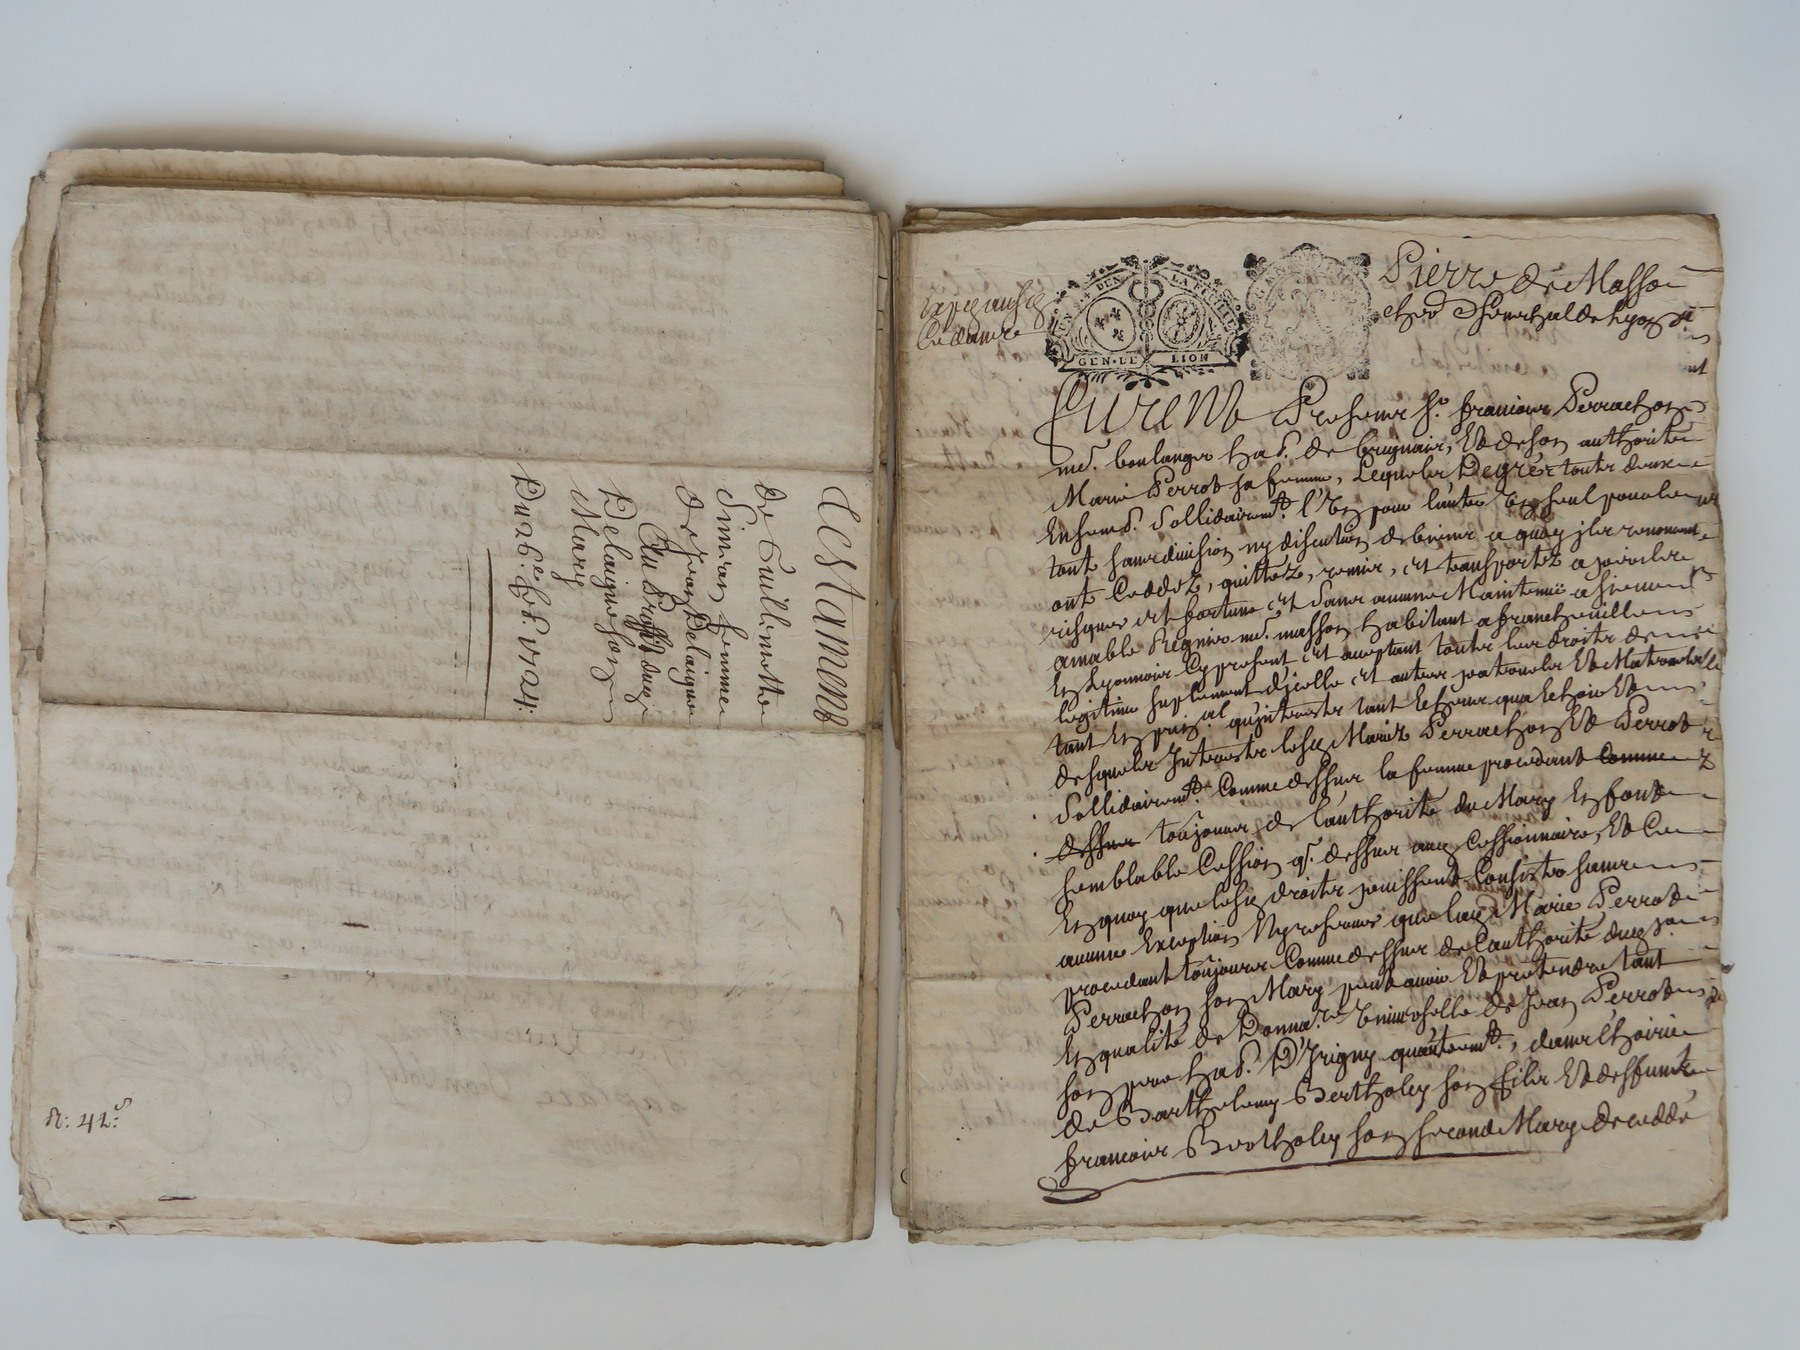 Testament
de Guillemette
Simiran femme
de Jean Delaigue
Au Proffit dud
Delaigue son
Mary
Du 26e. fé. 1724.
N: 42.e
GEN. DE LION
Pierre de Masso
chvr Senechal de Lyon
Furent Presents Sr. francois Perrachon
md. boulanger hab. de brignais, Et de son authorité
Marie Perrot sa femme, Lesquels Degrés touts deux
Ensemb. Sollidairemt. l'Un pour l'autre Un seul pour le
tout sans division ny discution de biens a quoy ils renoncent
ont Ceddez, quittez, remis, et transportez a perils
risques et fortune et sans aucune Maintenüe a sieur
amable Regnier md. masson habitant a francheville
En Lyonnois Cy present et acceptant touts les droits de
legitime suplement d'jcelle et autres paternels Et Maternels
tant En pnal qu'jnterests tant Escheus qua Echoir Et
desquels Interests lesd Mariez Perrachon Et Perrot
Sollidairemt. Comme dessus la femme procedant Comme
dessus toujours de l'authorité du Mary En font
semblable Cession q. dessus aud Cessionnaire, Et Ce
En quoy que lesd droits puissent Consister sans
aucune Exception Ny reserve que lad Marie Perrot
procedant toujours Comme dessus de l'authorité dud sr.
Perrachon son Mary peut avoir Et pretendre tant
En qualité de Donnare. Universelle de Jean Perrot
son pere hab. D'Irigny qu'autremt., dans l'hoirie
de Barthelemy Bertholey son fils Et de deffunt
francois Bertholey son second Mary decedde